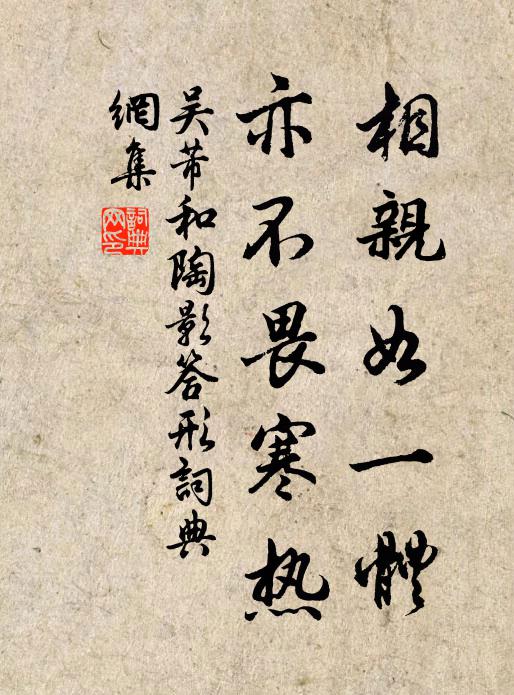 相親如一體
亦不畏寒热
吴芾和陶影答形詞典
網集
詞典
网印